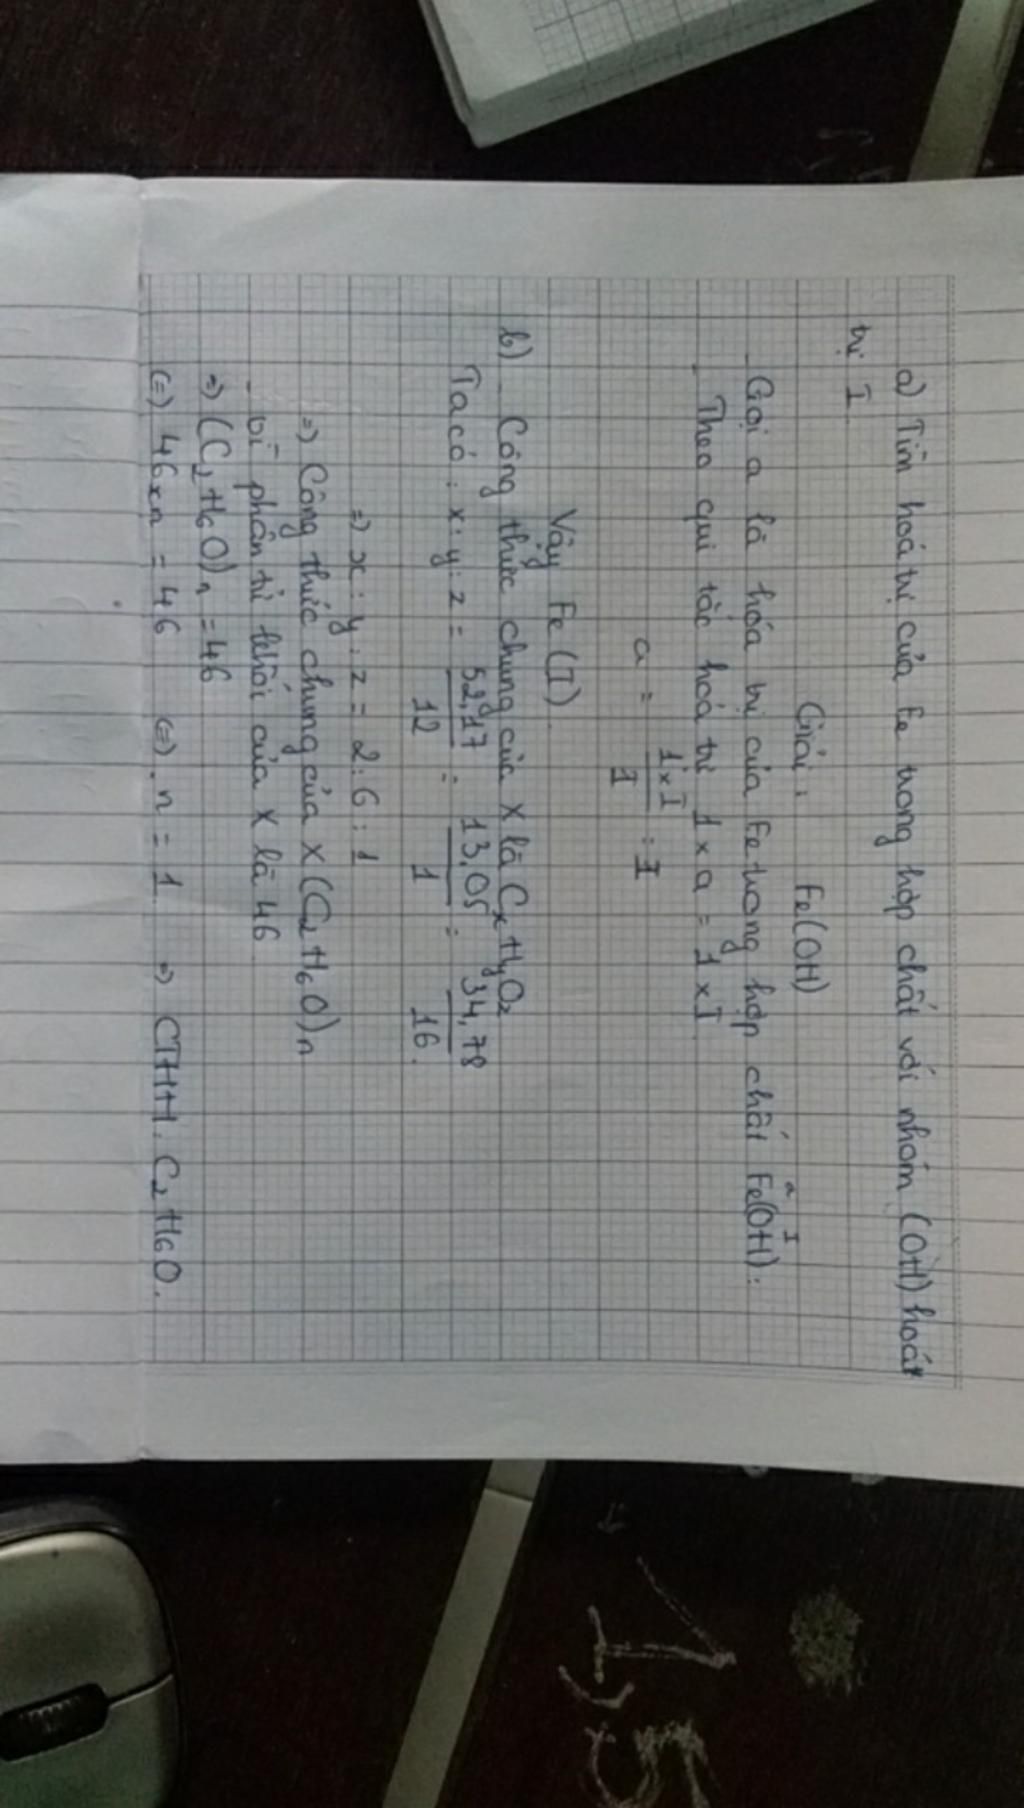 a) Tìm hoá trị của Fe trong hợp chất với nhóm (OH) hoát
trị I
Giải: Fe(OH)
Gọi a là hóa trị của Fe trong hợp chất Fe(OH):
a I
Theo qui tắc hoá trị 1 x a = 1 x I
a = 1 x I / 1 = I
Vậy Fe (I).
b) Công thức chung của X là CxHyOz
Ta có: x : y : z = 52,17 / 12 : 13,05 / 1 : 34,78 / 16.
=> x : y : z = 2 : 6 : 1
=> Công thức chung của X (C2H6O)n
Vì phân tử khối của X là 46
=> (C2H6O)n = 46
(=) 46xn = 46 (=) n = 1 => CTHH: C2H6O.